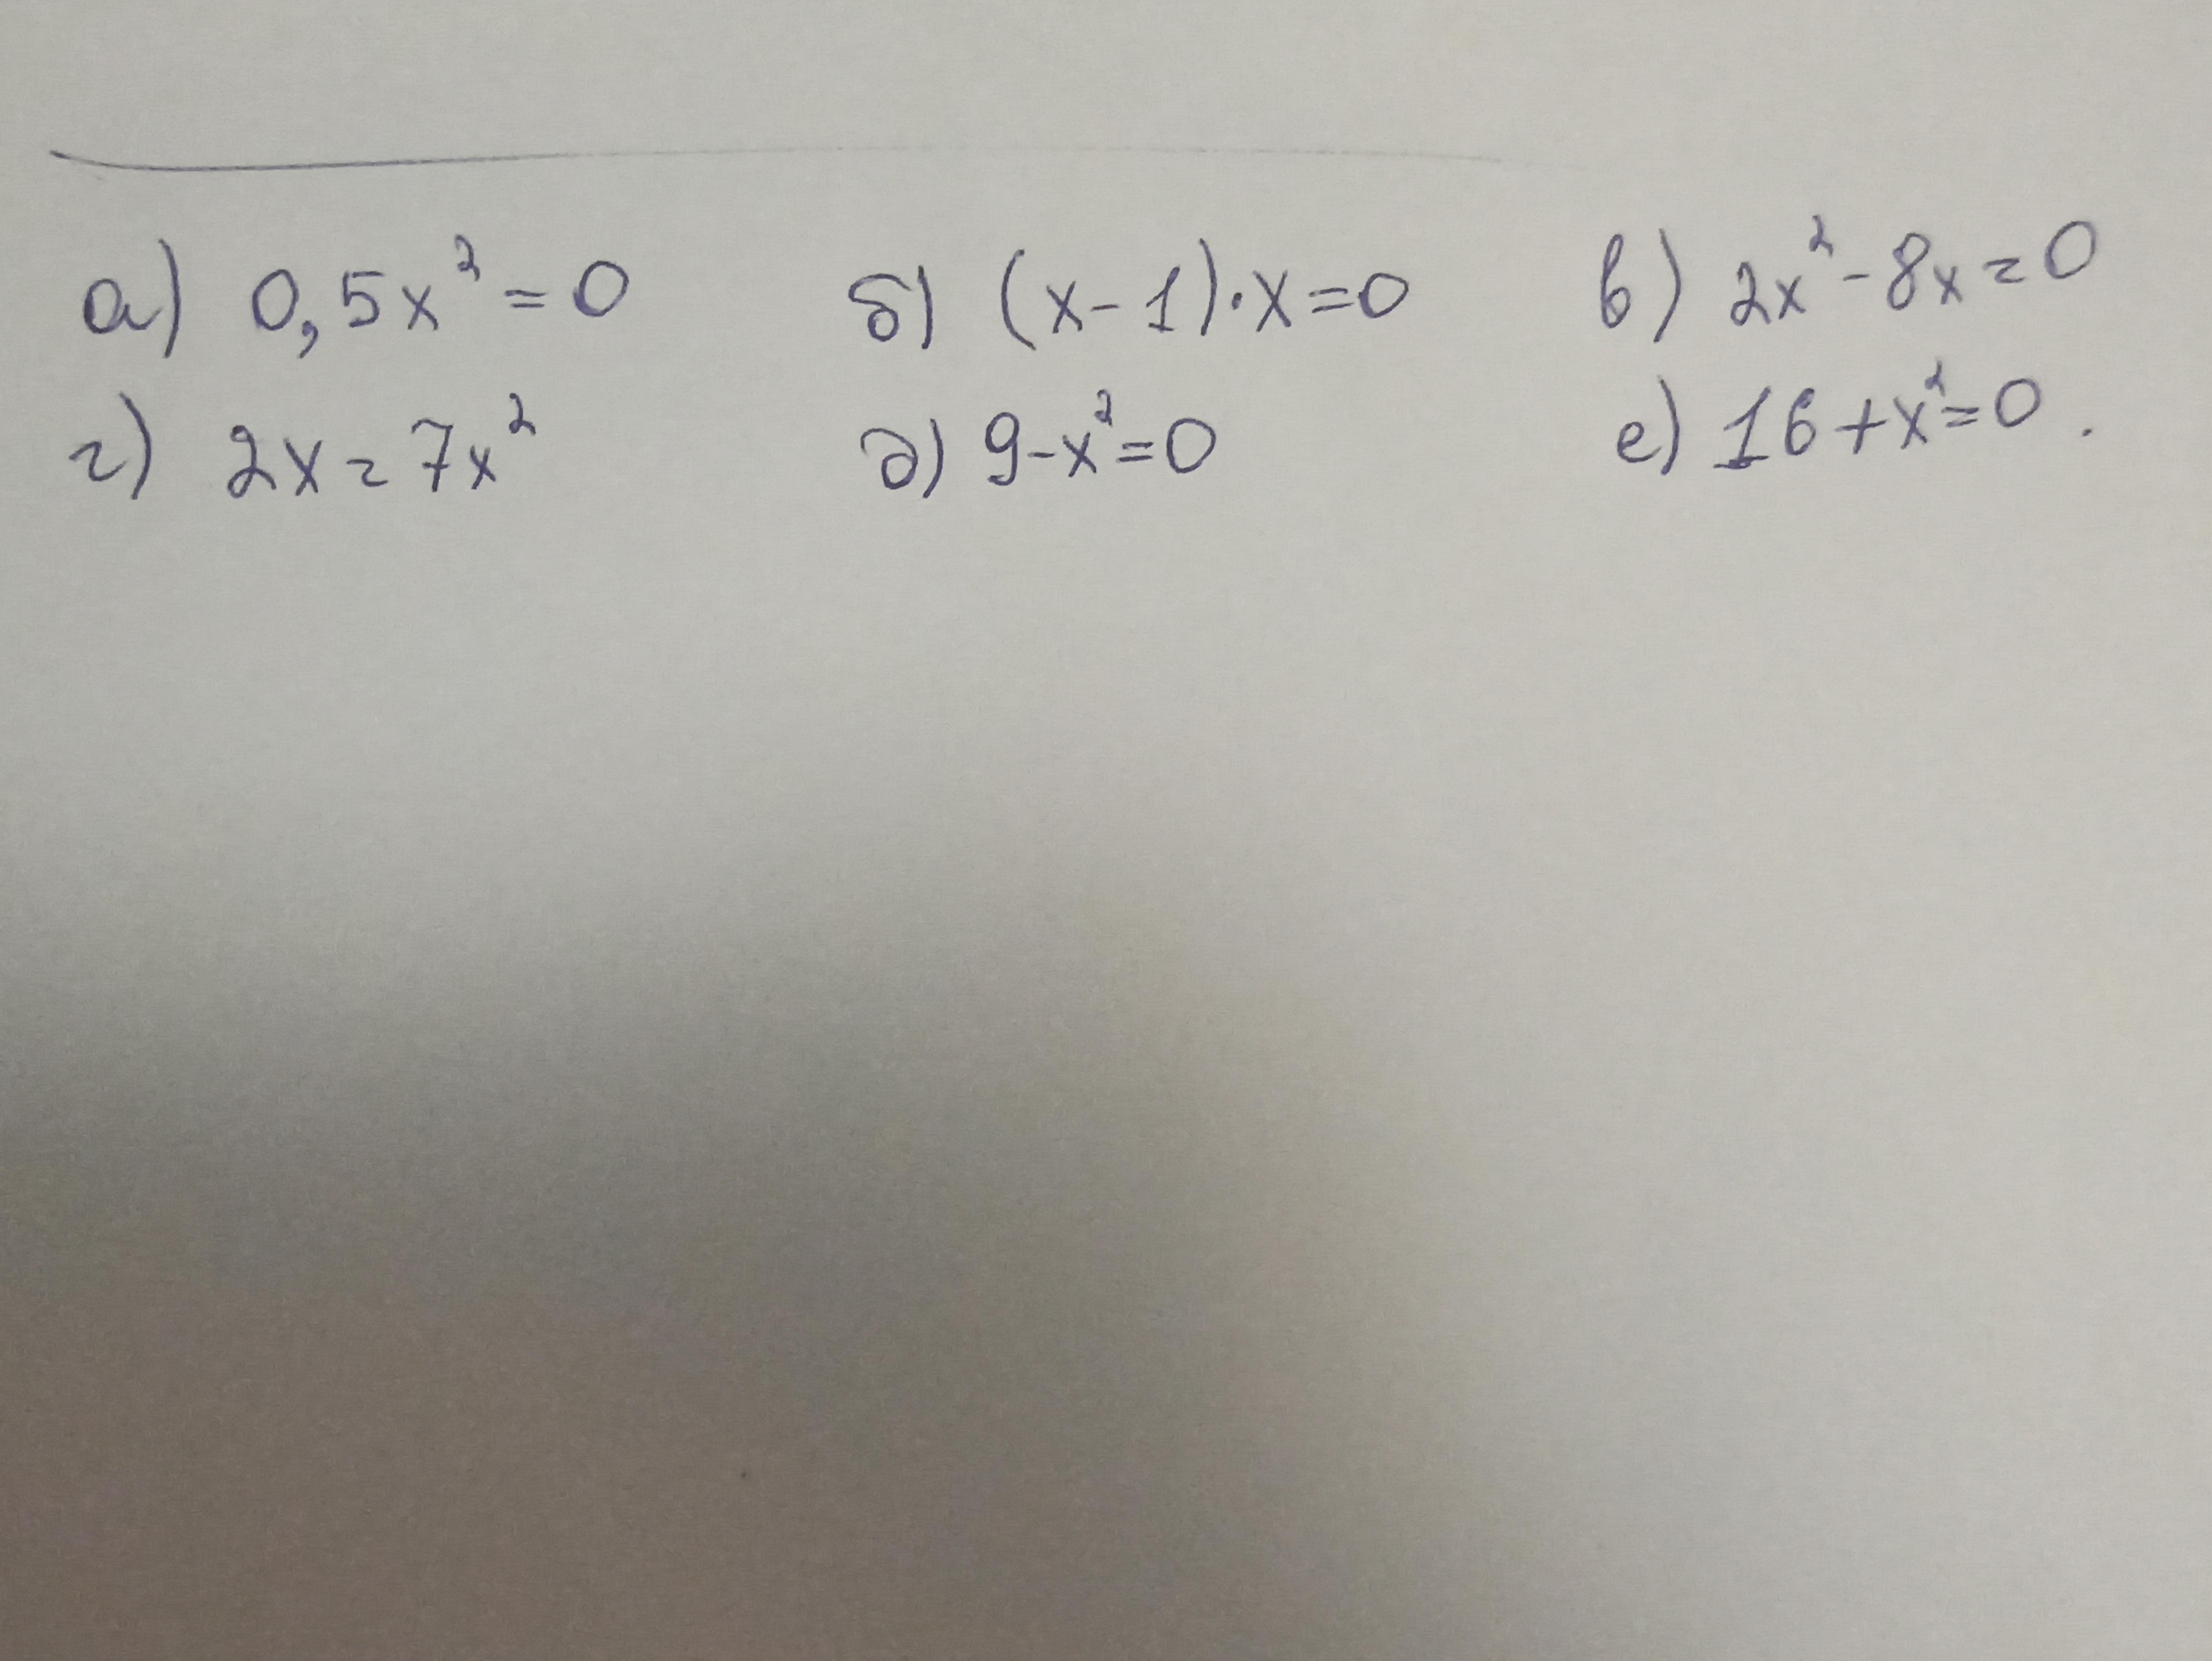 а) 0,5x² = 0 б) (x-1)·x=0 в) 2x²-8x=0
г) 2x=7x² д) 9-x²=0 е) 16+x²=0.